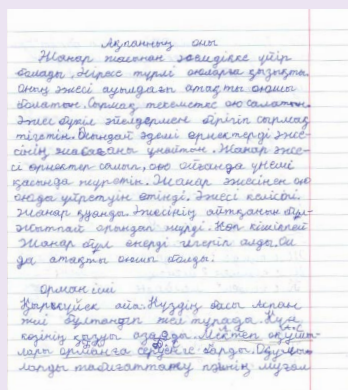 Ақпанның оны
Жанар жасынан әсемдікке үйір
болады. Әрине түрлі оюларға қызықты.
Оның әжесі ауылдағы атақты оюшы
болатын. Сырмақ текеметке ою салатын.
Әжесі бүкіл әйелдермен бірігіп сырмақ
тігетін. Осындай әдемі өрнектерді әже-
сінің жасағаны ұнайтын. Жанар әже-
сі өрнектер салып, ою ойғанда үнемі
қасында жүретін. Жанар әжесінен ою
оюды үйретуін өтінді. Әжесі келісті.
Жанар қуанды. Әжесінің айтқанын бұл-
жытпай орындап жүрді. Көп кішірмей
Жанар бұл өнерді игеріп алды. Ол
да атақты оюшы болды.
Орман іші
Қыркүйек айы. Күздің басы. Аспан
жиі бұлттанды жел тұрады. Күн
көзінің қызуы азаяды. Мектеп оқушы-
лары орманға серуенге барды. Оқушы-
ларды табиғаттану пәнінің мұғал